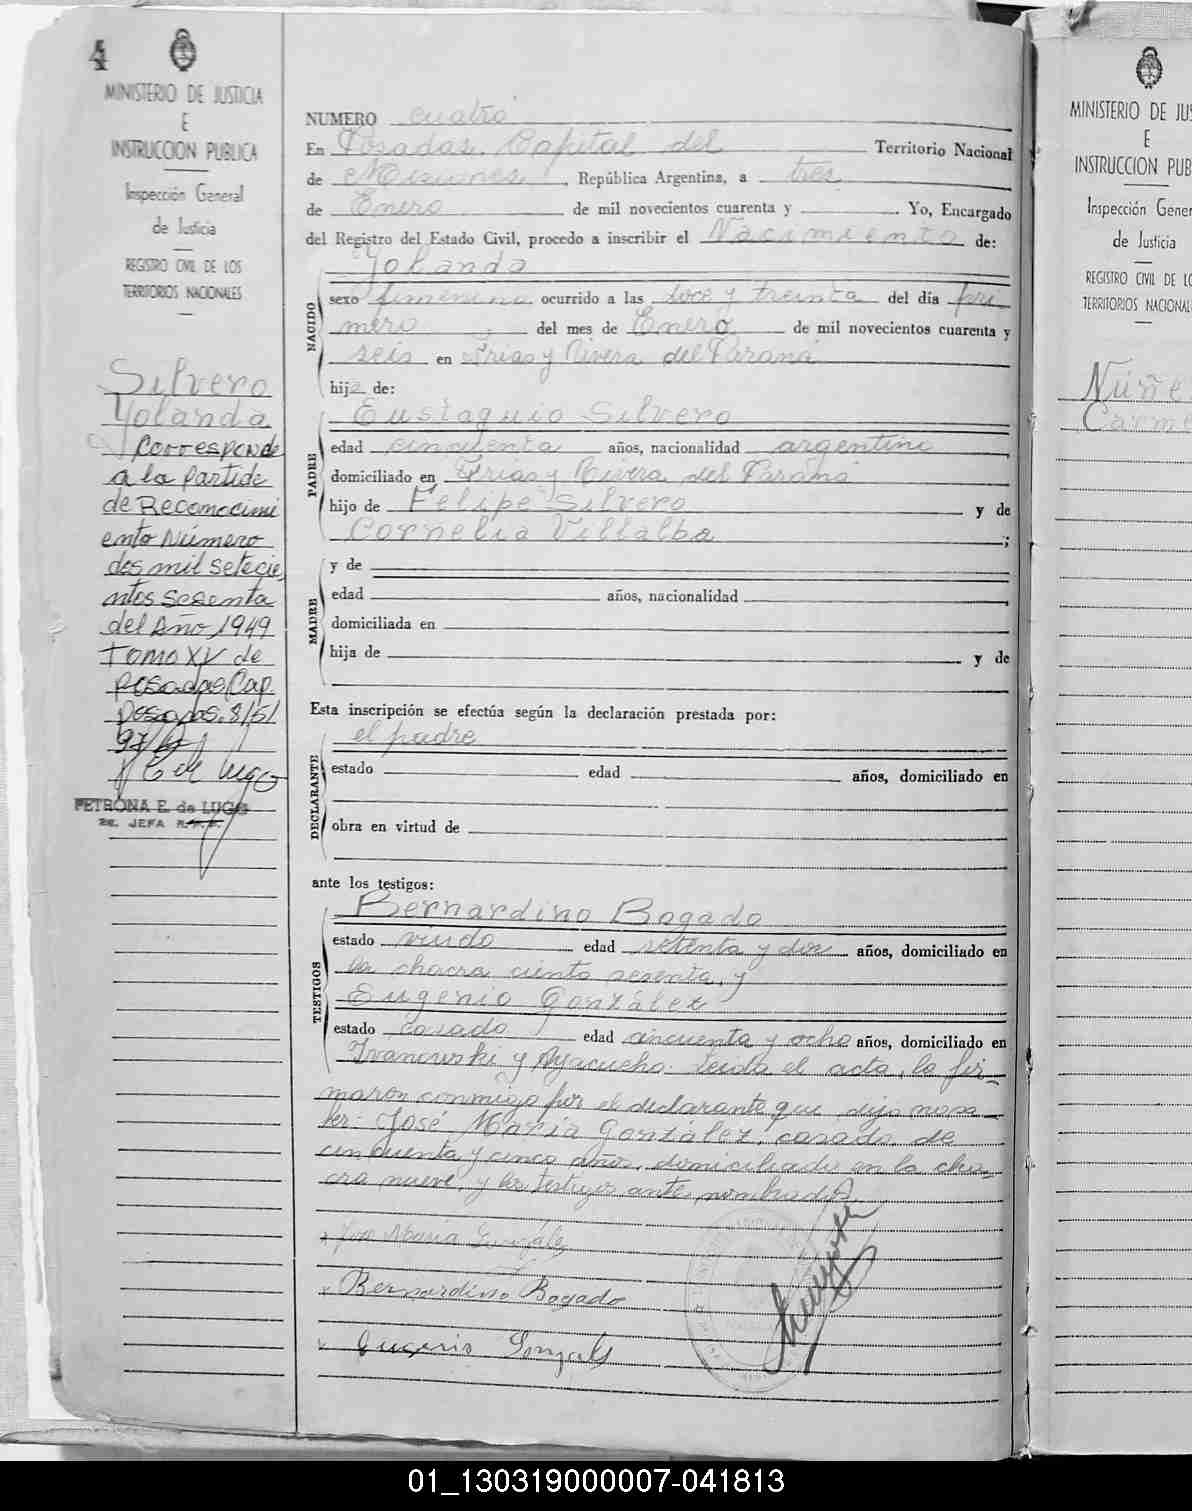 4
MINISTERIO DE JUSTICIA
E
INSTRUCCION PUBLICA
Inspección General
de Justicia
REGISTRO CIVIL DE LOS
TERRITORIOS NACIONALES
Silvero
Yolanda
Corresponde
a la partida
de Reconocimi
ento Número
dos mil setecie
ntos sesenta
del Año 1949
Tomo XV de
posadas, Cap
Posadas. 8/5/
97
PETRONA E. de LUGO
JEFA
NUMERO cuatro
En Posadas. Capital del Territorio Nacional
de Misiones, República Argentina, a tres
de Enero de mil novecientos cuarenta y Yo, Encargado
del Registro del Estado Civil, procedo a inscribir el Nacimiento de:
NACIDO
Yolanda
sexo femenino ocurrido a las doce y treinta del día pri
mero del mes de Enero de mil novecientos cuarenta y
seis en Frias y Rivera del Paraná
hija de:
PADRE
Eustaquio Silvero
edad cincuenta años, nacionalidad argentino
domiciliado en Frias y Rivera del Paraná
hijo de Felipe Silvero y de
Cornelia Villalba ;
MADRE
y de
edad años, nacionalidad
domiciliada en
hija de y de
Esta inscripción se efectúa según la declaración prestada por:
DECLARANTE
el padre
estado edad años, domiciliado en
obra en virtud de
ante los testigos:
TESTIGOS
Bernardino Bogado
estado viudo edad setenta y dos años, domiciliado en
la chacra ciento sesenta, y
Eugenio González
estado casado edad cincuenta y ocho años, domiciliado en
Ivanowski y Ayacucho. Leida el acta, la fir-
maron conmigo por el declarante que dijo no sa-
ber: José María González, casado de
cincuenta y cinco años, domiciliado en la cha-
cra nueve, y los testigos ante nombrados
José María González
Bernardino Bogado
Eugenio Gonzals
MINISTERIO DE JUS
E
INSTRUCCION PUB
Inspección Gener
de Justicia
REGISTRO CIVIL DE LO
TERRITORIOS NACIONAL
Núñe
Carme
01_130319000007-041813